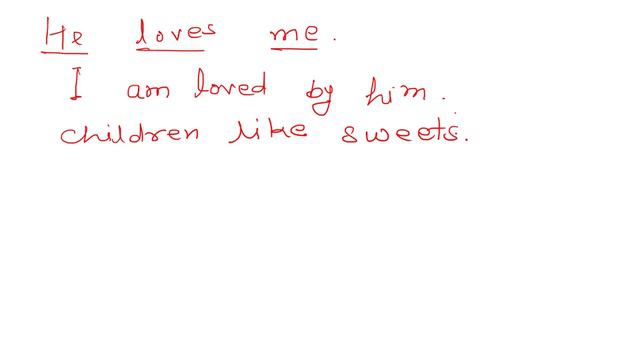 He loves me.
I am loved by him.
children like sweets.